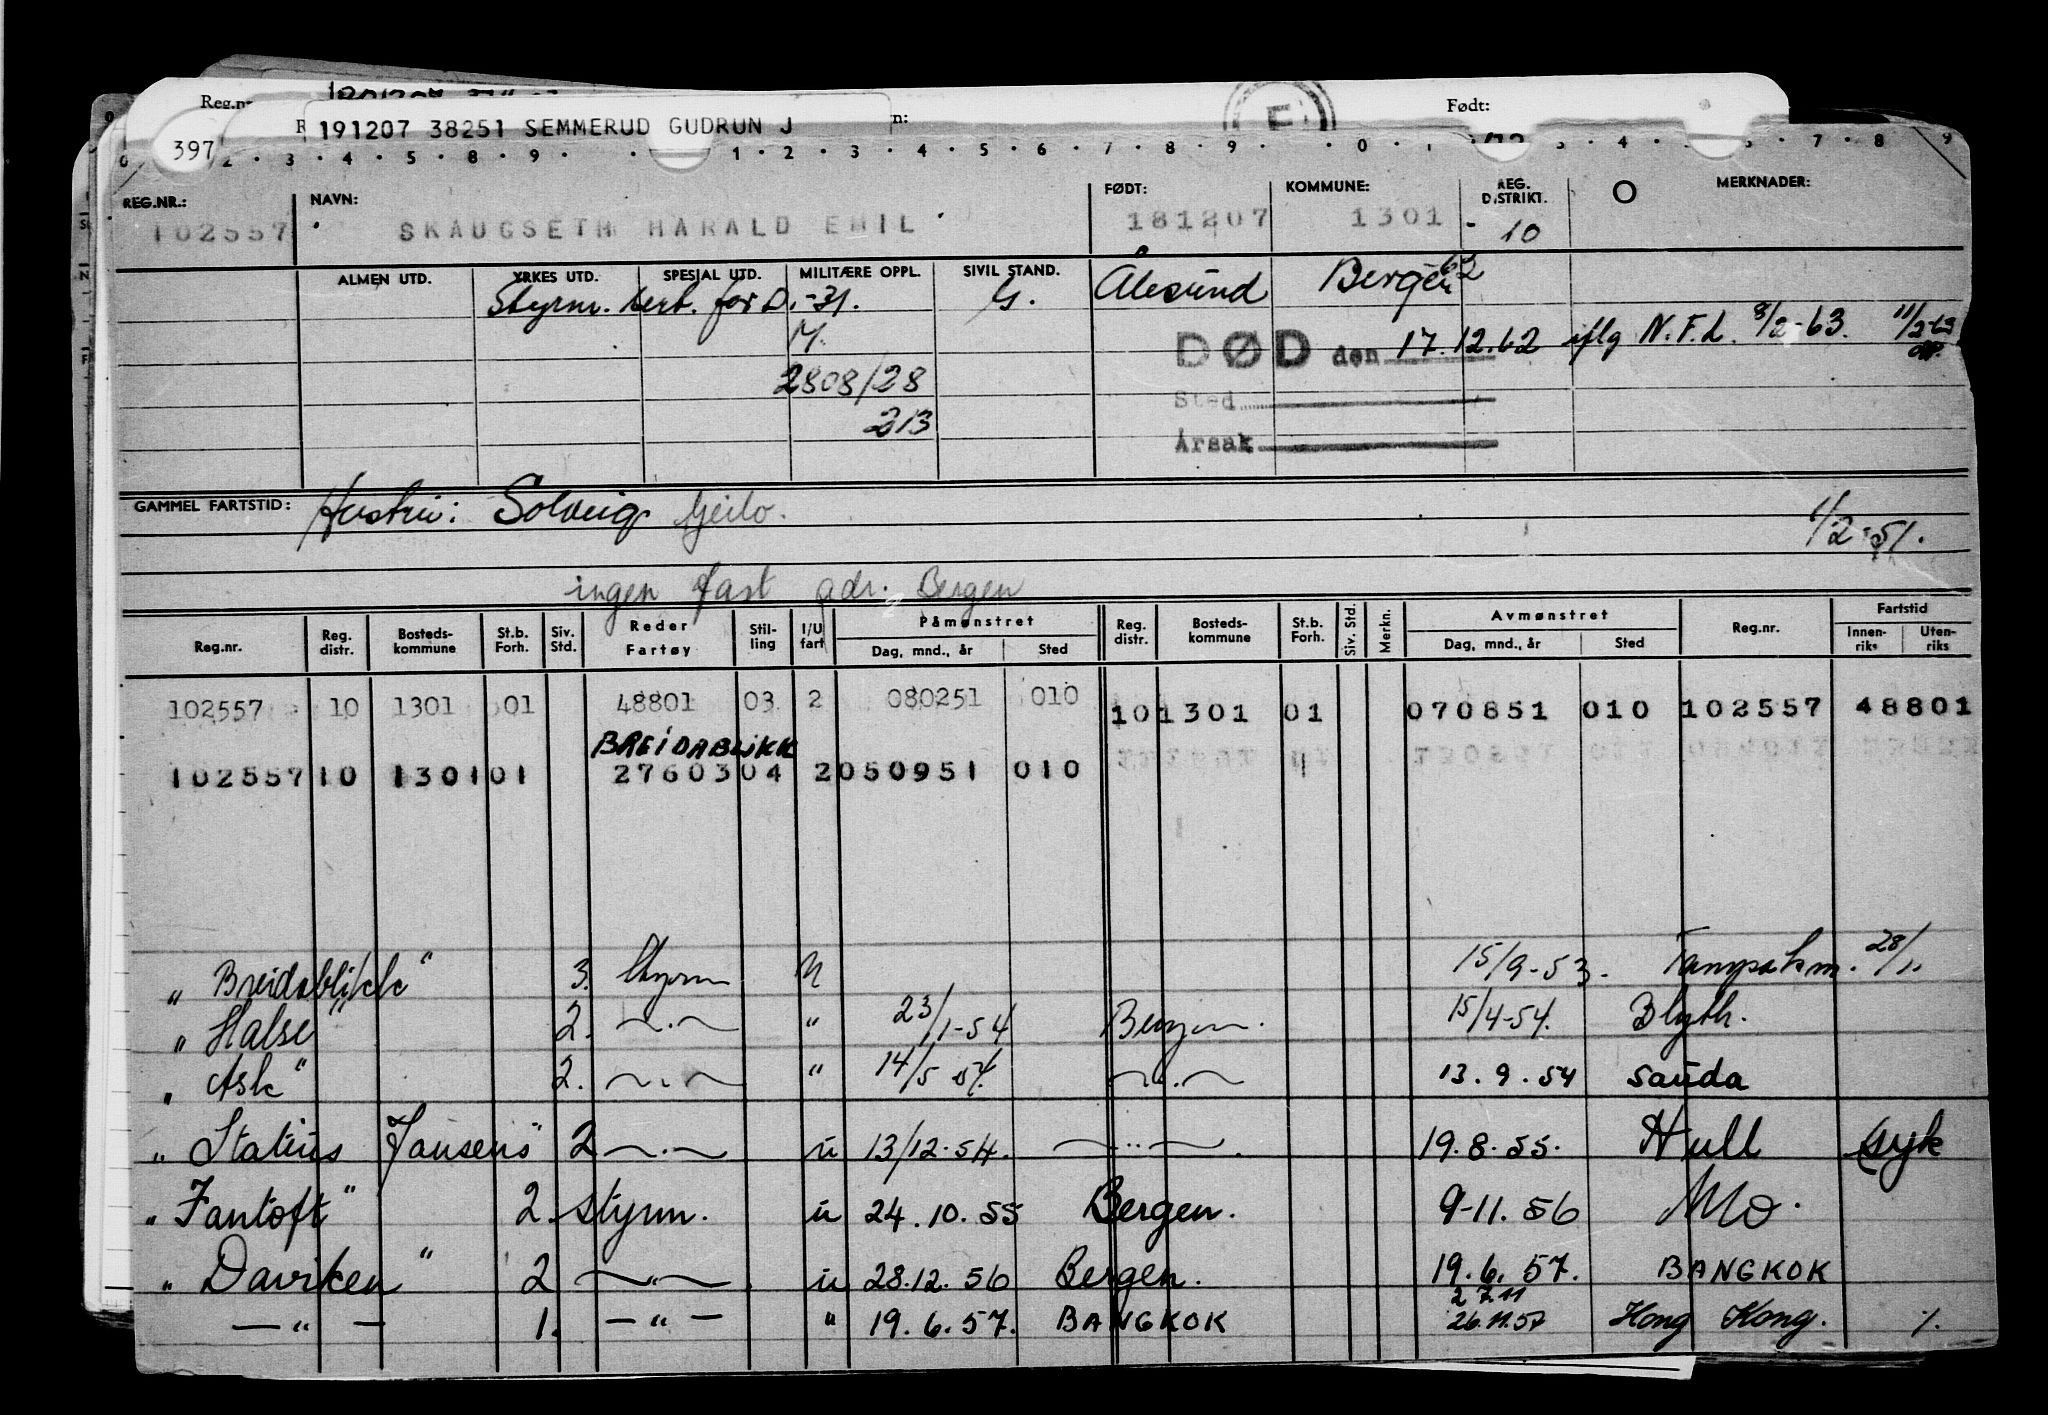 Reg.nr
Født:
191207 38251 SEMMERUD GUDRUN J
397
2 . 3 . 4 . 5 . 8 . 9 . 1 . 2 . 3 . 4 . 5 . 6 . 7 . 8 . 9 . 0 . 4 . 7 . 8 9
REG.NR.: NAVN: FØDT: KOMMUNE: REG. DISTRIKT. O MERKNADER:
102557 SKAUGSETH HARALD EMIL 181207 1301 - 10
ALMEN UTD. YRKES UTD. SPESIAL UTD. MILITÆRE OPPL. SIVIL STAND. Ålesund Bergen 62
Styrm. sert. for D. -31. G.
M.
DØD den 17.12.62 iflg N.F.L. 8/2-63. 11/2-63
2808/28
Sted
213
Årsak
GAMMEL FARTSTID: Hustru: Solveig Geilo.
1/2-51.
ingen fast adr. Bergen
Reg.nr. Reg. distr. Bosteds-kommune St.b. Forh. Siv. Std. Reder Fartøy Stil-ling I/U fart Påmønstret Dag, mnd., år Sted Reg. distr. Bosteds-kommune St.b. Forh. Siv. Std. Merkn. Avmønstret Dag, mnd., år Sted Reg.nr. Fartstid Innen-riks Uten-riks
102557 10 1301 01 48801 03 2 080251 010 10 1301 01 070851 010 102557 48801
BREIDABLIKK
102557 10 1301 01 27603 04 2 050951 010
" Breidablikk " 3. Styrm U 15/9-53. Tampa 28/
" Halse " 2. -"- " 23/1-54 Bergen. 15/4-54. Blyth.
" Ask " 2. -"- " 14/5 54. -"- 13.9.54 Sauda
" Statius Jansens " 2 -"- u 13/12-54. -"- 19.8.55. Hull syk
" Fantoft " 2. styrm. u 24.10.55 Bergen. 9-11.56 Mo.
" Daviken " 2 -"- u 28.12.56 Bergen. 19.6.57. BANGKOK
-"- 1. -"- " 19.6.57. BANGKOK 27.11 26.11.57 Hong Kong. /.